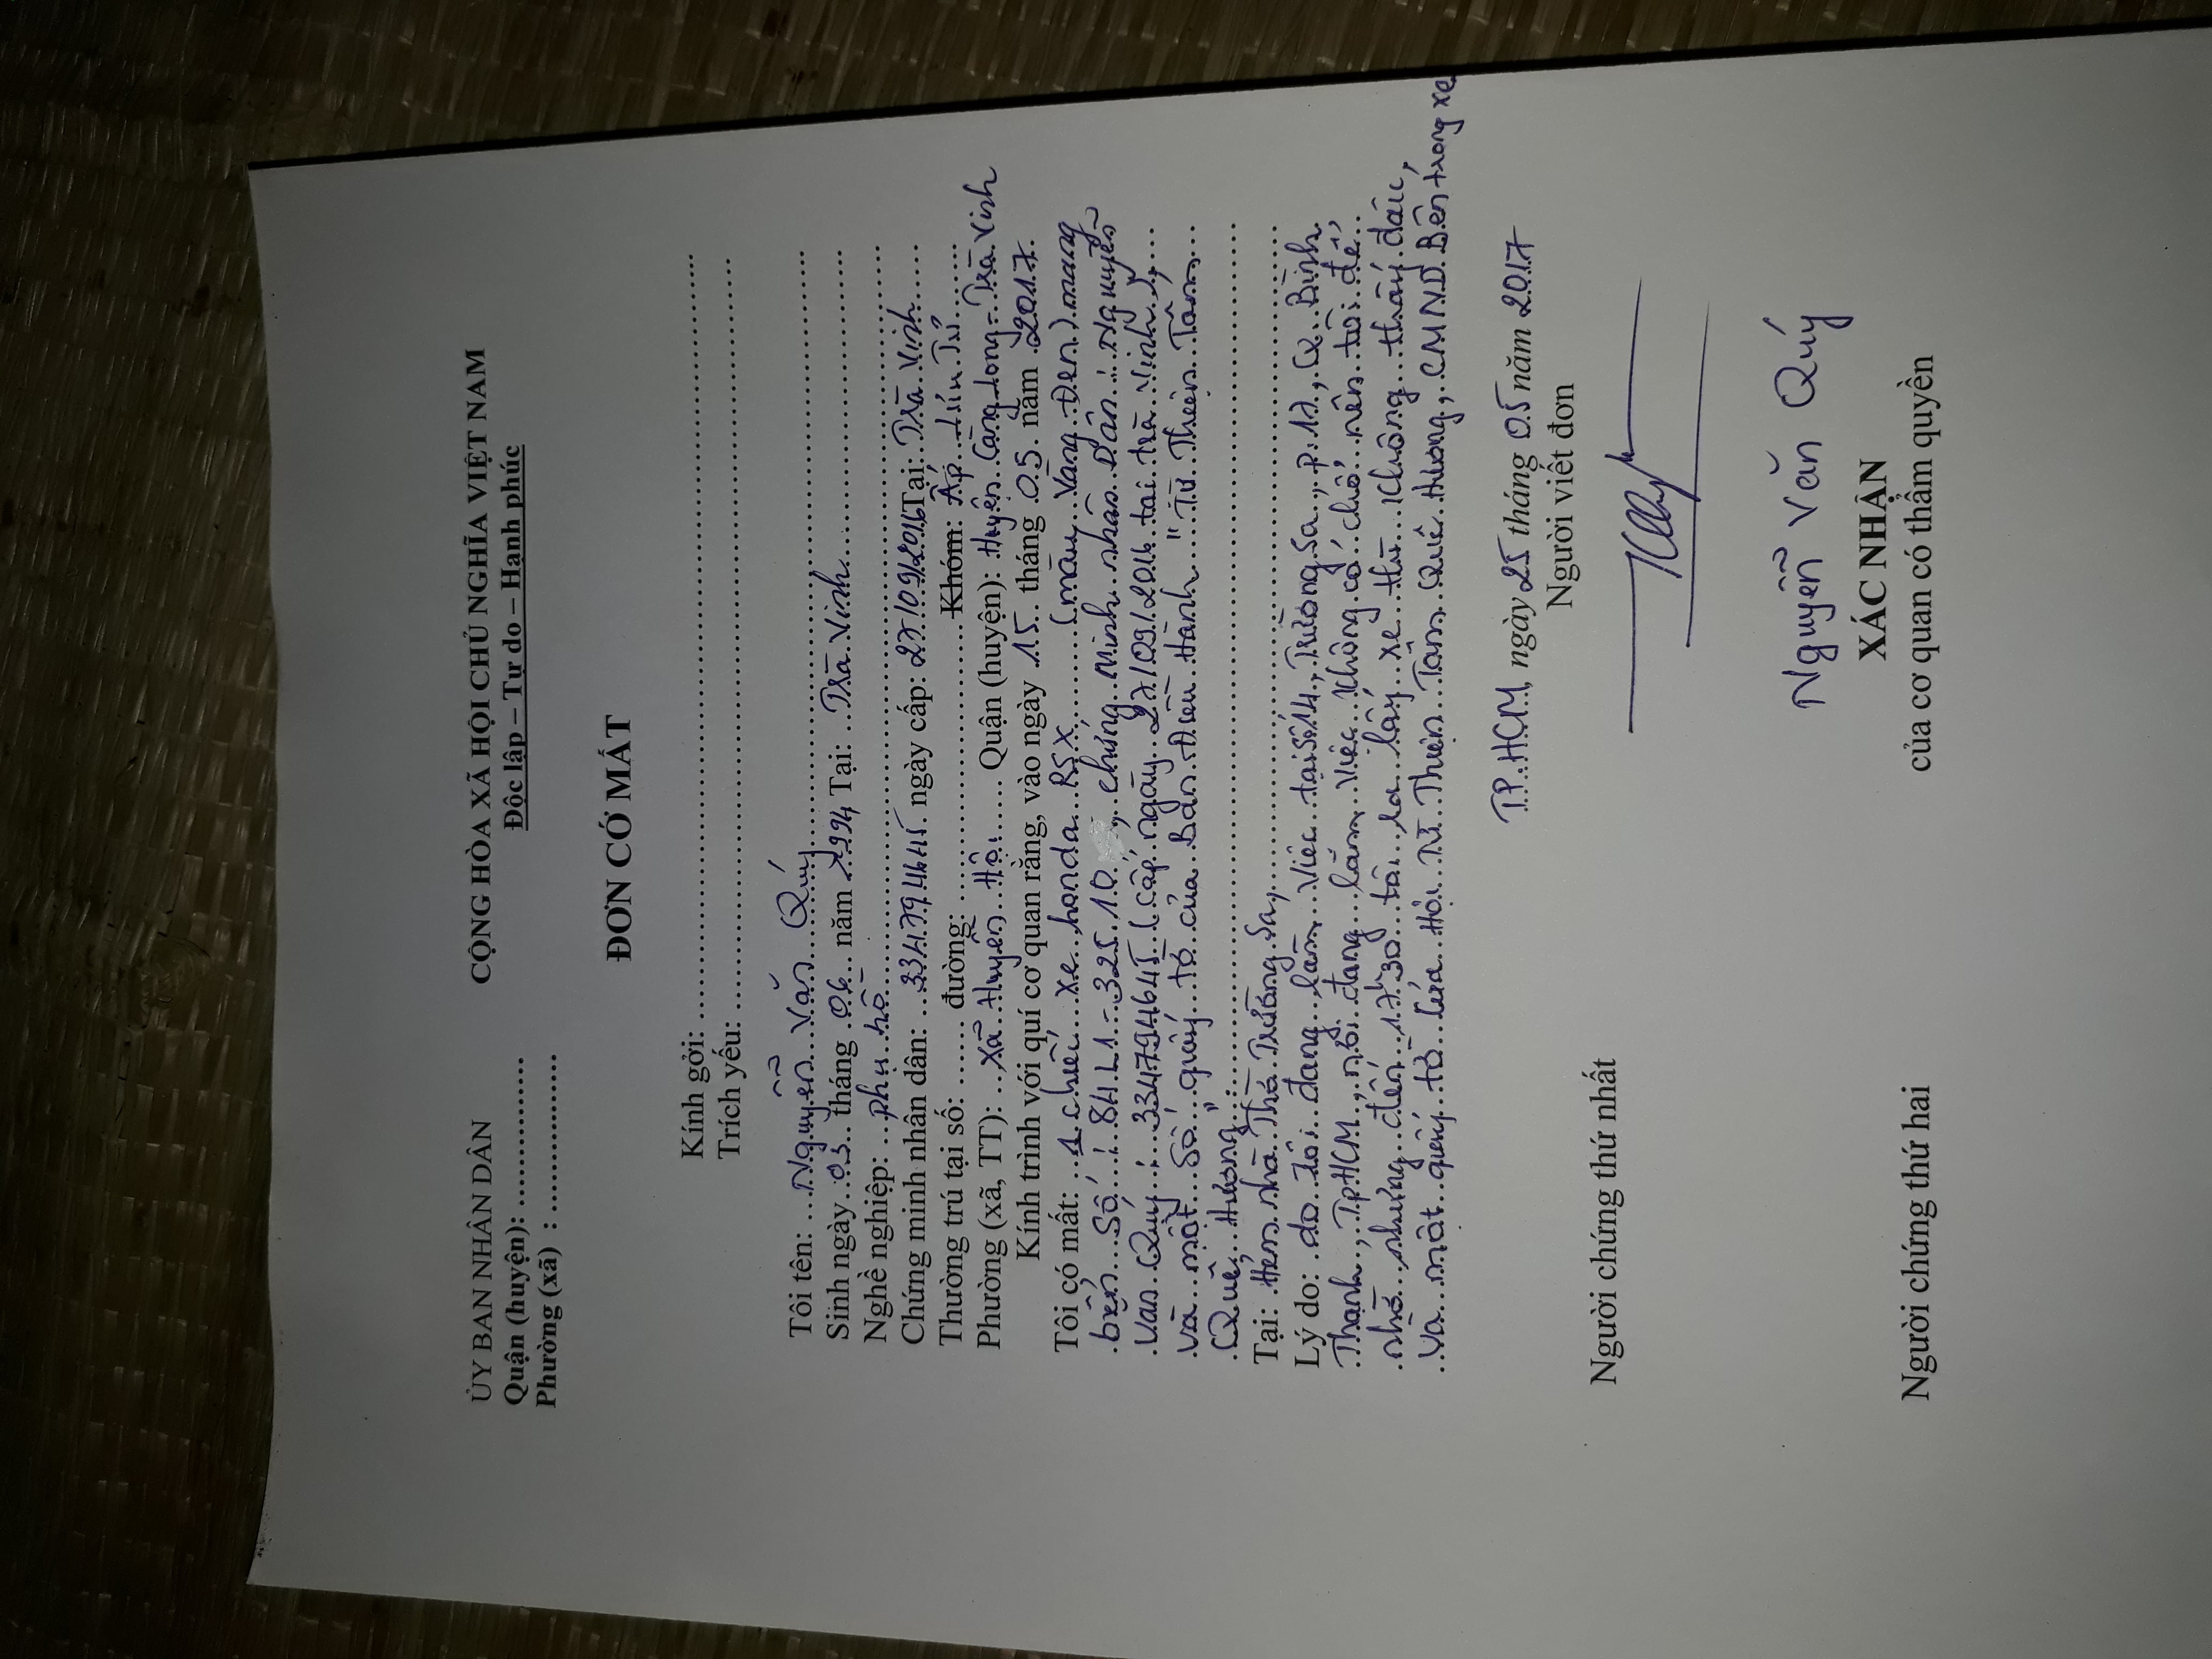 ỦY BAN NHÂN DÂN
Quận (huyện): ................
Phường (xã) : ................
CỘNG HÒA XÃ HỘI CHỦ NGHĨA VIỆT NAM
Độc lập – Tự do – Hạnh phúc
ĐƠN CỚ MẤT
Kính gởi: ................
Trích yếu: ................
Tôi tên: Nguyễn Văn Quý
Sinh ngày 03 tháng 06 năm 1994 Tại: Trà Vinh
Nghề nghiệp: phụ hồ
Chứng minh nhân dân: 334794645 ngày cấp: 27/09/2016 Tại: Trà Vinh
Thường trú tại số: ....... đường: ................ Khóm: Ấp Lưu Tư
Phường (xã, TT): xã Huyền Hội Quận (huyện): Huyện Càng Long - Trà Vinh
Kính trình với quí cơ quan rằng, vào ngày 15 tháng 05 năm 2017
Tôi có mất: 1 chiếc xe honda RSX (màu Vàng Đen) mang
biển Số : 84L1 - 325.10, chứng Minh nhân Dân : Nguyễn
Văn Quý : 334794645 (cấp ngày 27/09/2016 tại trà Vinh),
Và một Số "giấy tờ của Ban Điều Hành "Từ Thiện Tâm
Quê Hương"
Tại: Hẻm nhà Thờ Trường Sa,
Lý do: do Tôi đang làm Việc tại Số 14, Trường Sa, p.17, Q. Bình
Thạnh, TpHCM, nơi đang làm Việc không có chổ nên tôi để
nhờ nhưng đến 17h30 tôi ra lấy xe thì không thấy đâu,
Và một giấy tờ của Hội Từ Thiện Tâm Quê Hương, CMND Bên trong xe
TP.HCM, ngày 25 tháng 05 năm 2017
Người viết đơn
Người chứng thứ nhất
Nguyễn Văn Quý
XÁC NHẬN
của cơ quan có thẩm quyền
Người chứng thứ hai